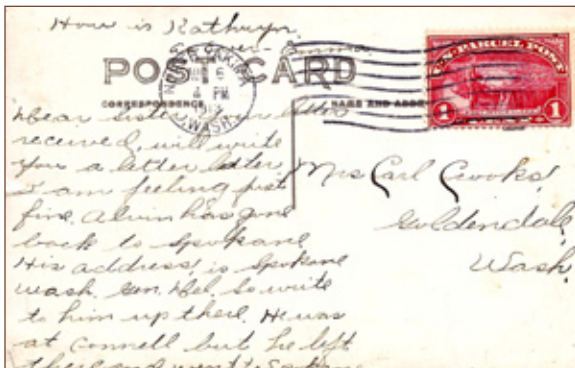 How is Kathryn.
POST CARD
CORRESPONDENCE
NAME AND ADDR
NORTH YAKIMA
6
PM
1913
WASH.
U.S. PARCEL POST
1 1
Dear Sister your letter
received, will write
you a letter later
I am feeling just
fine. Alvin has gone
back to Spokane
His address, is Spokane
Wash. Gen. Del. So write
to him up there. He was
at Connell but he left
there and went to Spokane
Mrs Carl Crooks,
Goldendale,
Wash.